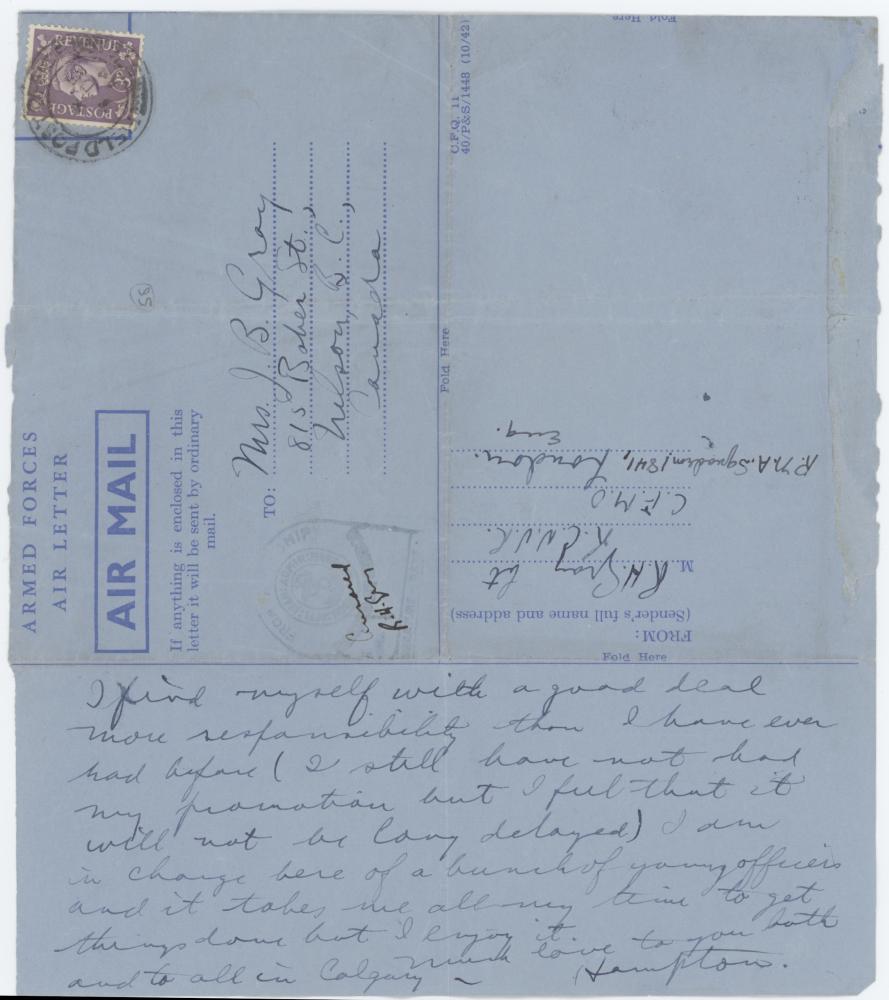 REVENUE
POSTAGE
ARMED FORCES
AIR LETTER
AIR MAIL
If anything is enclosed in this
letter it will be sent by ordinary
mail.
55
TO:
Mrs. J. B. Gray
815 Baker St.,
Nelson, B.C.,
Canada
Censored
R.H.Gray
Fold Here
C.F.Q. 11
40/P&S/1448 (10/42)
Fold Here
Fold Here
FROM:
(Sender's full name and address)
M
R.H. Gray Lt
R.C.N.V.R.
C.F.M.O
R.N.A. Squadron 1841, London.
Eng.
I find myself with a good deal
more responsibility than I have ever
had before (I still have not had
my promotion but I feel that it
will not be long delayed) I am
in charge here of a bunch of young officers
and it takes me all my time to get
things done but I enjoy it.
Much love to you both
and to all in Calgary –
Hampton.